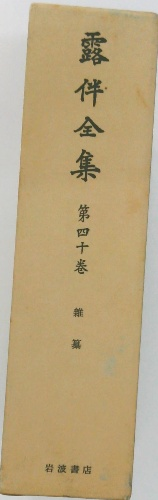 露伴全集
第四十卷
雜纂
岩波書店